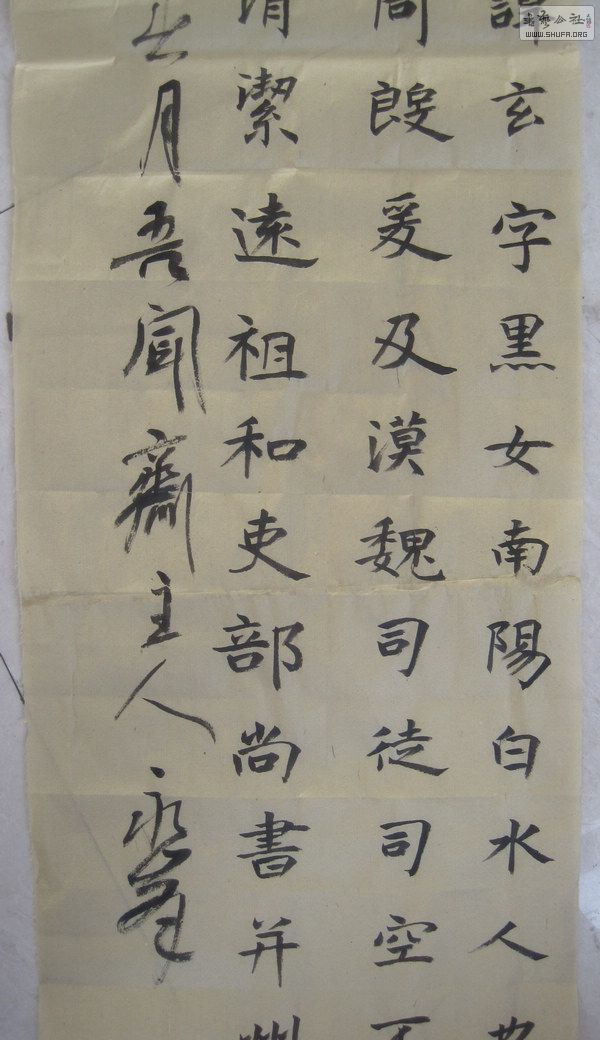 諱玄字黑女南陽白水人
周殷爰及漠魏司徒司空不
清潔遠祖和吏部尚書并州
月吾聞齋主人
書藝公社
WWW.SHUFA.ORG